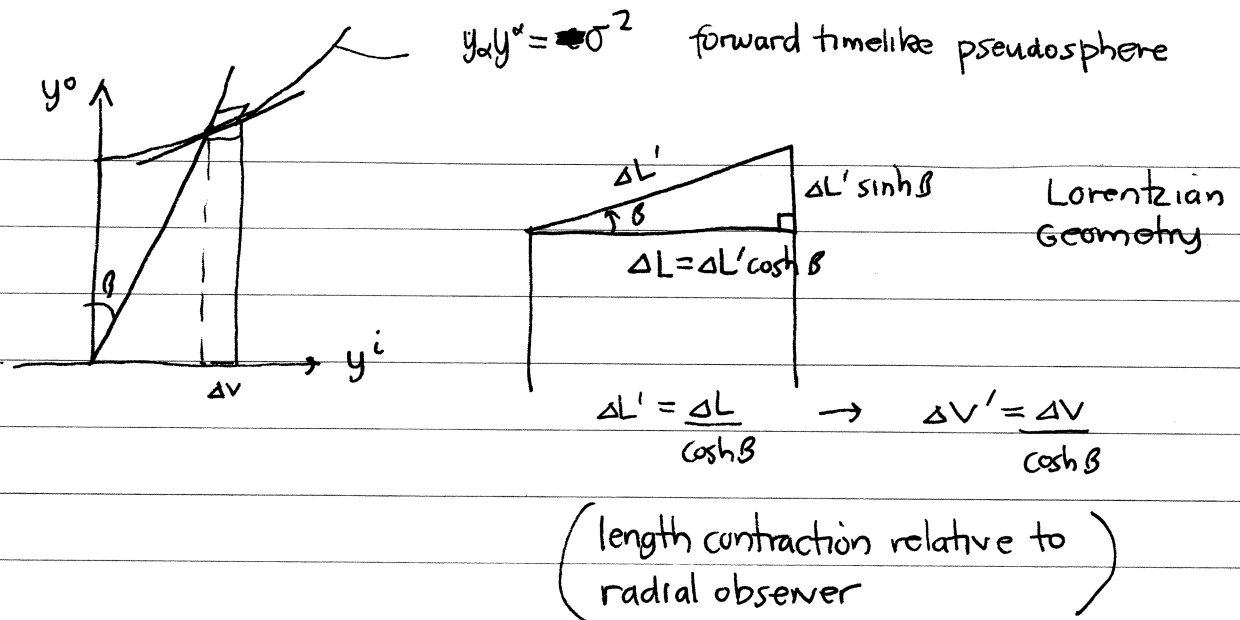 y_α y^α = σ^2 forward timelike pseudosphere
y^0
β
y^i
ΔV
ΔL'
β
ΔL' sinhβ
ΔL = ΔL' coshβ
Lorentzian
Geometry
ΔL' = ΔL / coshβ → ΔV' = ΔV / coshβ
(length contraction relative to
radial observer)